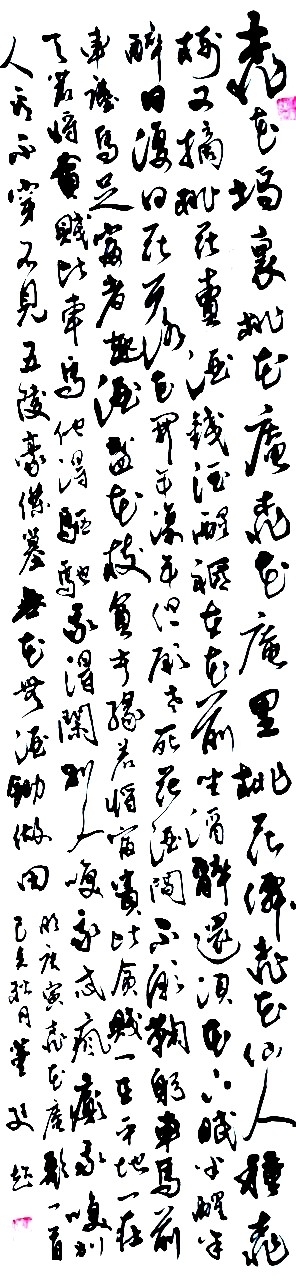 桃花坞裏桃花庵桃花庵里桃花僊桃花仙人種桃
樹又摘桃花賣酒錢酒醒祇在花前坐酒醉還須花下眠半醒半
醉日復日花落花開年復年但願老死花酒間不願鞠躬車馬前
車塵馬足富者趣酒盞花枝貧者緣若將富貴比貧賤一在平地一在
天若將貧賤比車馬他得驅馳我得閑別人笑我忒瘋癲我笑別
人看不穿不見五陵豪傑墓無花無酒鋤做田
明唐寅桃花庵歌一首
己亥秋月董